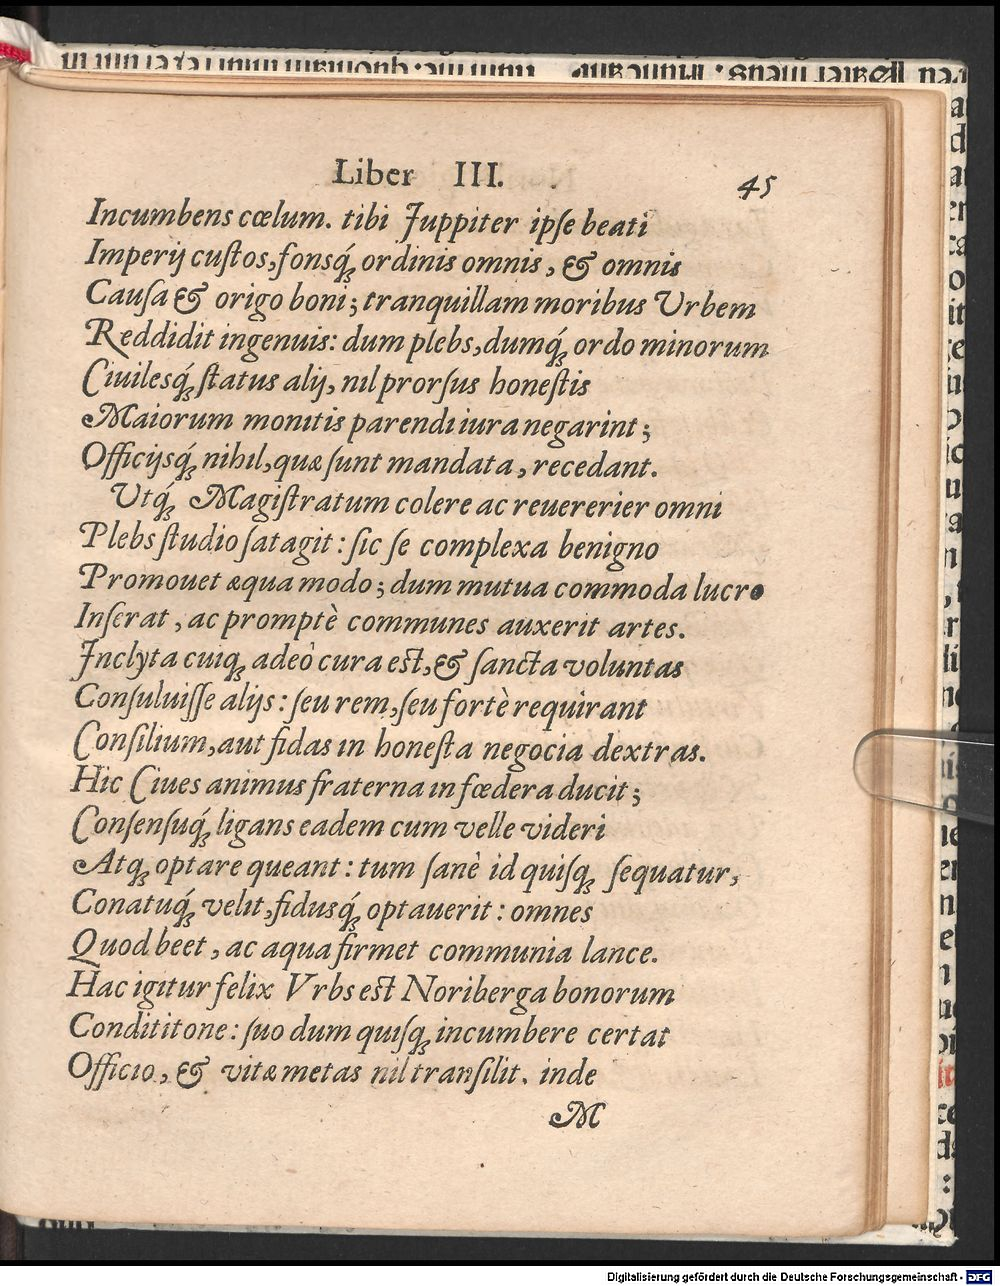 Liber III. 45
Incumbens cœlum. tibi Juppiter ipſe beati
Imperij cuſtos, fonsq́ꝫ ordinis omnis, & omnis
Cauſa & origo boni; tranquillam moribus Vrbem
Reddidit ingenuis: dum plebs, dumq́ꝫ ordo minorum
Ciuilesq́ꝫ ſtatus alij, nil prorſus honeſtis
Maiorum monitis parendi iura negarint;
Officijsq́ꝫ nihil, quæ ſunt mandata, recedant.
Utq́ꝫ Magiſtratum colere ac reuererier omni
Plebs ſtudio ſatagit: ſic ſe complexa benigno
Promouet æqua modo; dum mutua commoda lucro
Inſerat, ac promptè communes auxerit artes.
Jnclyta cuiqꝫ adeò cura eſt, & ſancta voluntas
Conſuluiſſe alijs: ſeu rem, ſeu fortè requirant
Conſilium, aut fidas in honeſta negocia dextras.
Hic Ciues animus fraterna in fœdera ducit;
Conſenſuq́ꝫ ligans eadem cum velle videri
Atqꝫ optare queant: tum ſanè id quiſqꝫ ſequatur,
Conatuq́ꝫ velit, fidusq́ꝫ optauerit: omnes
Quod beet, ac aqua firmet communia lance.
Hac igitur felix Vrbs est Noriberga bonorum
Condititone: ſuo dum quiſqꝫ incumbere certat
Officio, & vitæ metas nil tranſilit. inde
M
Digitalisierung gefördert durch die Deutsche Forschungsgemeinschaft - DFG